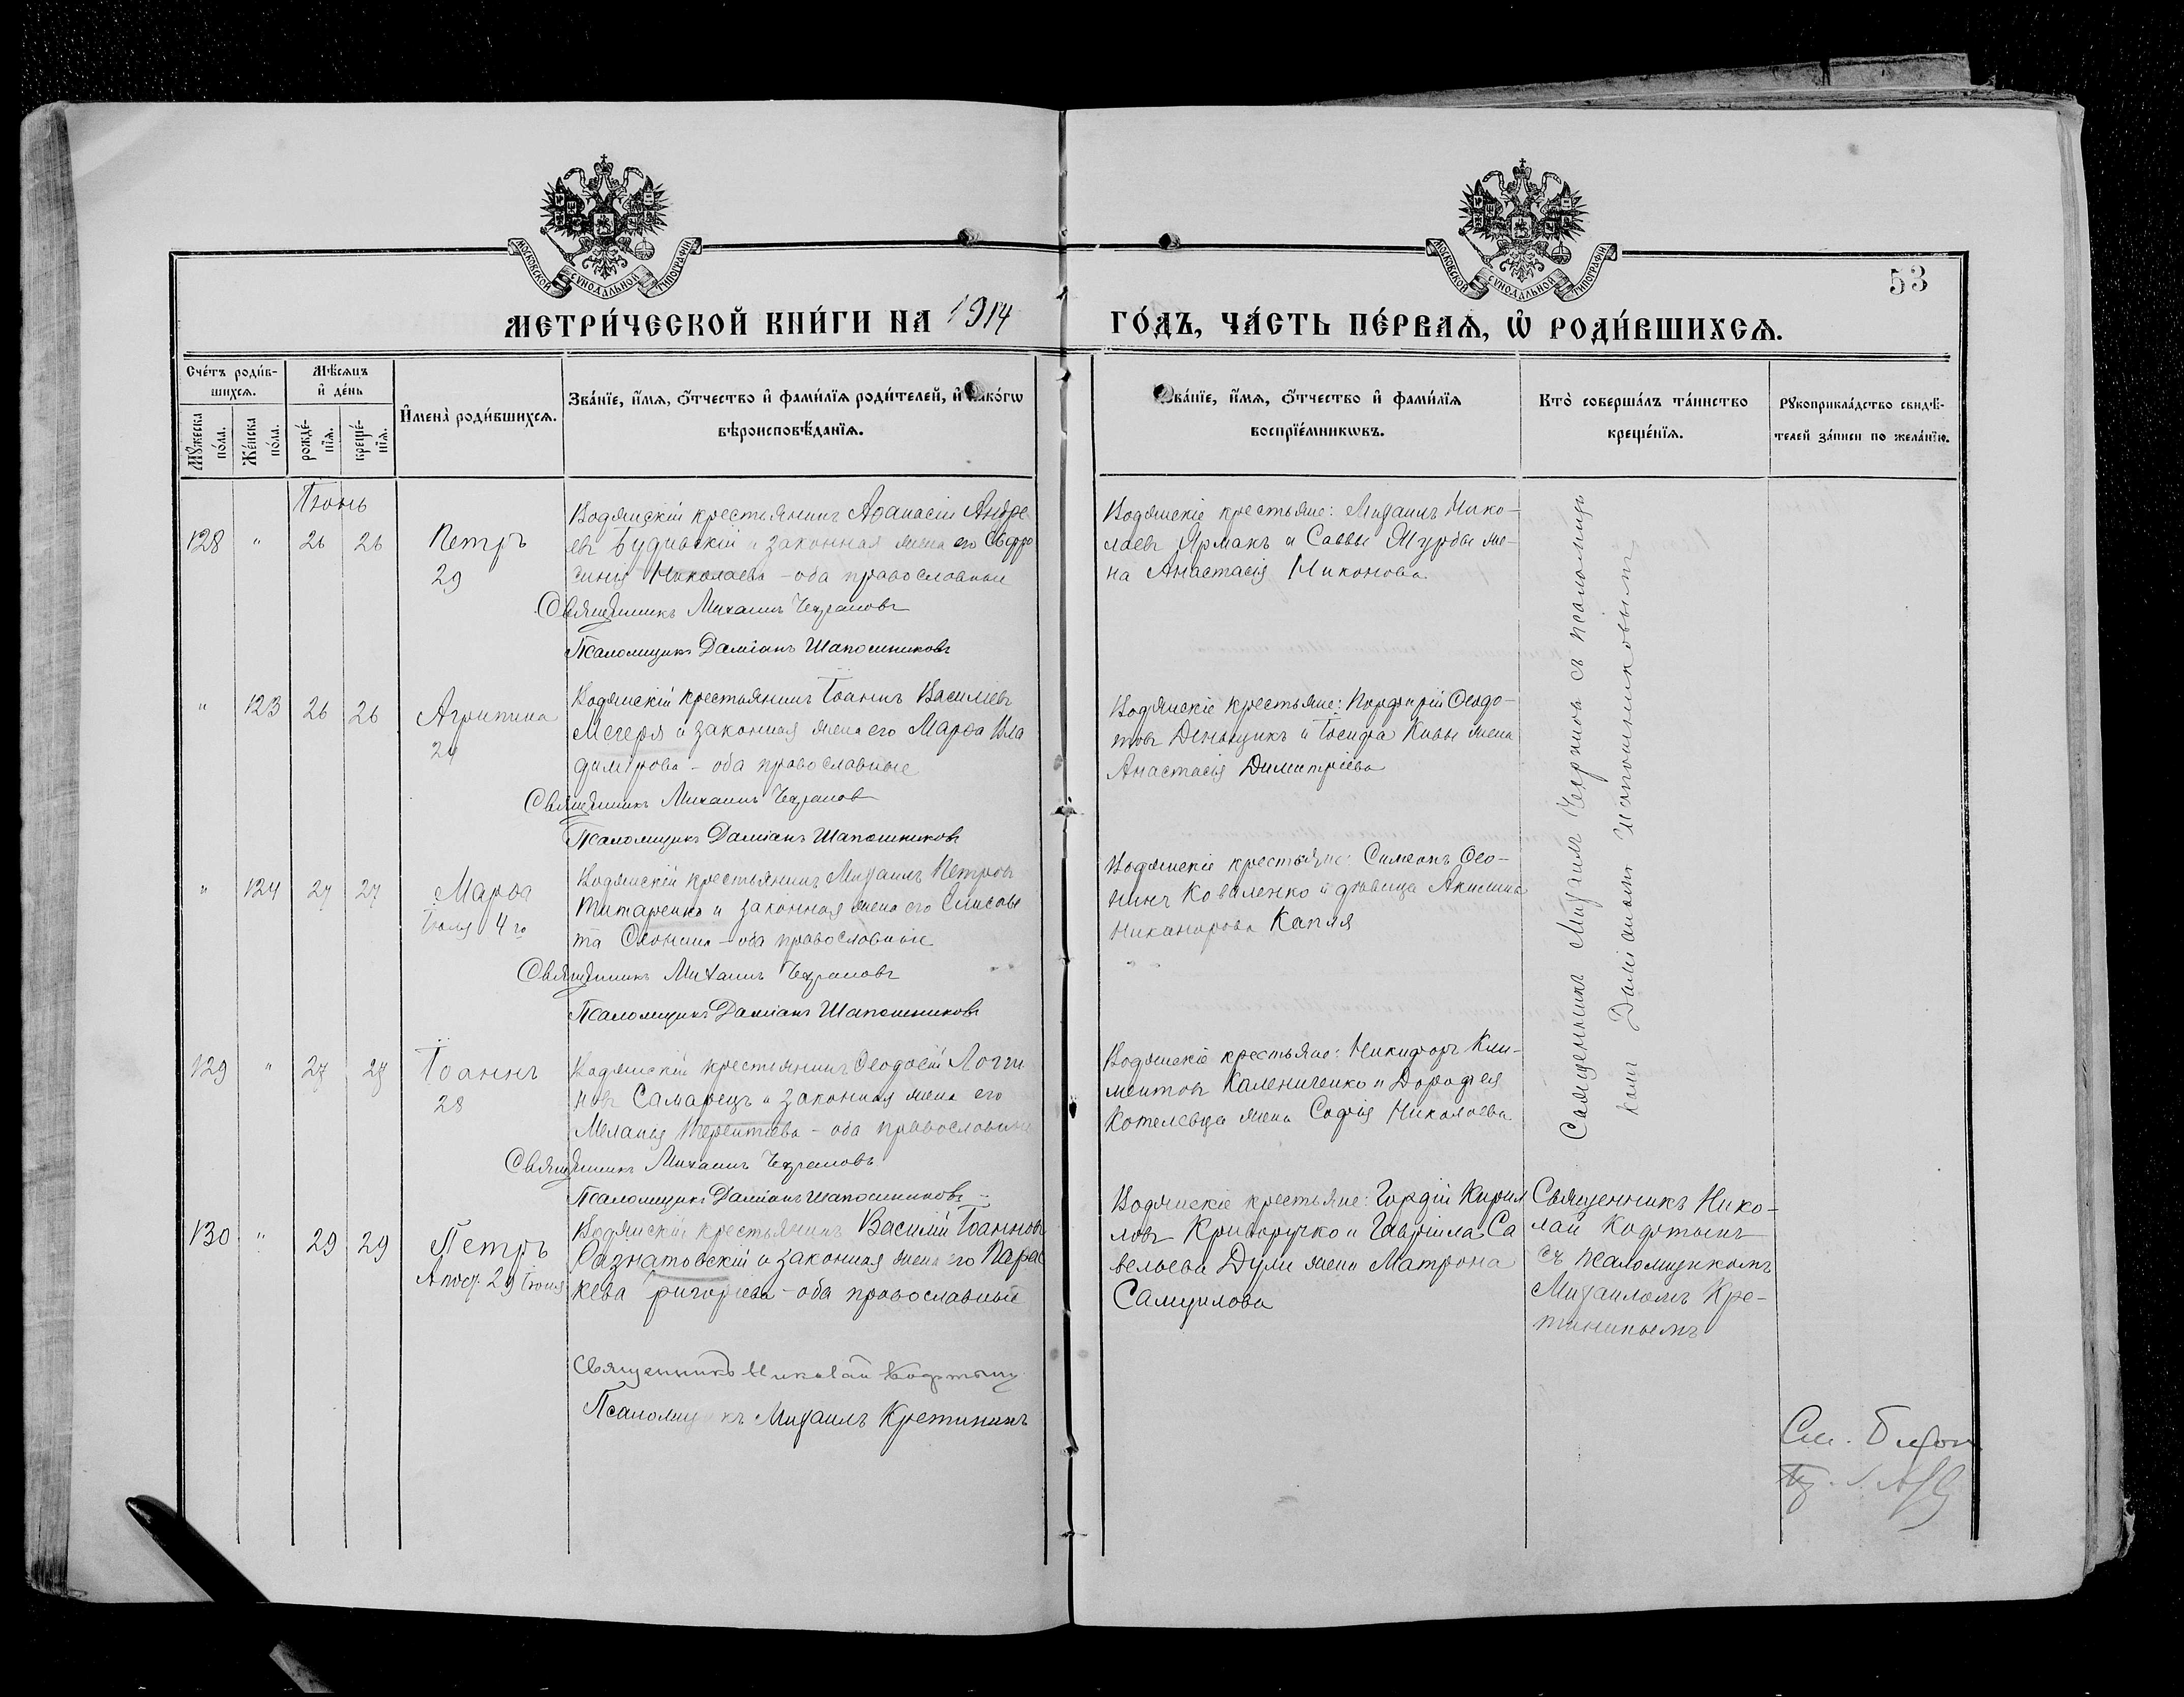 МОСКОВСКОЙ СѴНОДАЛЬНОЙ ТИПОГРАФІИ
МОСКОВСКОЙ СѴНОДАЛЬНОЙ ТИПОГРАФІИ
53
МЕТРИ́ЧЕСКОЙ КНИ́ГИ НА 1914
ГО́ДЪ, ЧА́СТЬ ПЕ́РВАѦ, Ѡ҆ РОДИ́ВШИХСѦ.
Сче́тъ роди́в-
шихсѧ.
Мѣ́сяцъ
и҆ де́нь
Мꙋ́жеска по́ла.
Же́нска по́ла.
рожде́-нїѧ.
креще́-нїѧ.
И҆мена̀ роди́вшихсѧ.
Зва́нїе, и҆́мѧ, ѻ҆́тчество и҆ фами́лїѧ роди́телей, и҆ како́гѡ
вѣроисповѣ́данїѧ.
Зва́нїе, и҆́мѧ, ѻ҆́тчество и҆ фами́лїѧ
воспрїе́мникѡвъ.
Кто̀ соверша́лъ та́инство
креще́нїѧ.
Рꙋкоприкла́дство свидѣ́-
телей за́писи по жела́нїю.
Іюнь
128 " 26 26 Петръ
29
Водянскій крестьянинъ Аѳанасій Андре
евъ Будивскій и законная жена его Евфро
синія Николаева – оба православные
Священникъ Михаилъ
Псаломщикъ Даміанъ Шапошниковъ
Водянскіе крестьяне: Михаилъ Нико-
лаевъ Ярмакъ и Саввы Журбы же-
на Анастасія Никонова
Священникъ Михаилъ съ псаломщи
комъ Даміаномъ Шапошниковымъ
" 123 26 26 Агрипина
24
Водянскій крестьянинъ Іоаннъ Василіевъ
Мегеря и законная жена его Марѳа Вла
димірова – оба православные
Священникъ Михаилъ
Псаломщикъ Даміанъ Шапошниковъ
Водянскіе крестьяне: Порфирій Ѳеодо-
товъ Деньщикъ и Іосифа Кивы жена
Анастасія Димитріева
" 124 27 27 Марѳа
Іюля 4го
Водянскій крестьянинъ Михаилъ Петровъ
Титаренко и законная жена его Елисаве
та – оба православные
Священникъ Михаилъ
Псаломщикъ Даміанъ Шапошниковъ
Водянскіе крестьяне: Симеонъ
Коваленко и дѣвица Акилина
Никанорова Капля
129 " 27 27 Іоаннъ
28
Водянскій крестьянинъ Ѳеодосій Логги
новъ Самарецъ и законная жена его
Меланія Терентіева – оба православные
Священникъ Михаилъ
Псаломщикъ Даміанъ Шапошниковъ
Водянскіе крестьяне: Никифоръ Кли-
ментовъ Калениченко и Дорофея
Котелевца жена Софія Николаева
130 " 29 29 Петръ
Апост. 29 Іюня
Водянскій крестьянинъ Василій Іоанновъ
Разнатовскій и законная жена его Парас
кева Григоріева – оба православные
Священникъ Николай
Псаломщикъ Михаилъ Кретининъ
Водянскіе крестьяне: Гордій Кирил
ловъ Криворучко и Гавріила Са
вельева Дули жена Матрона
Самуилова
Священникъ Нико-
лай
съ псаломщикомъ
Михаиломъ Кре-
тининымъ